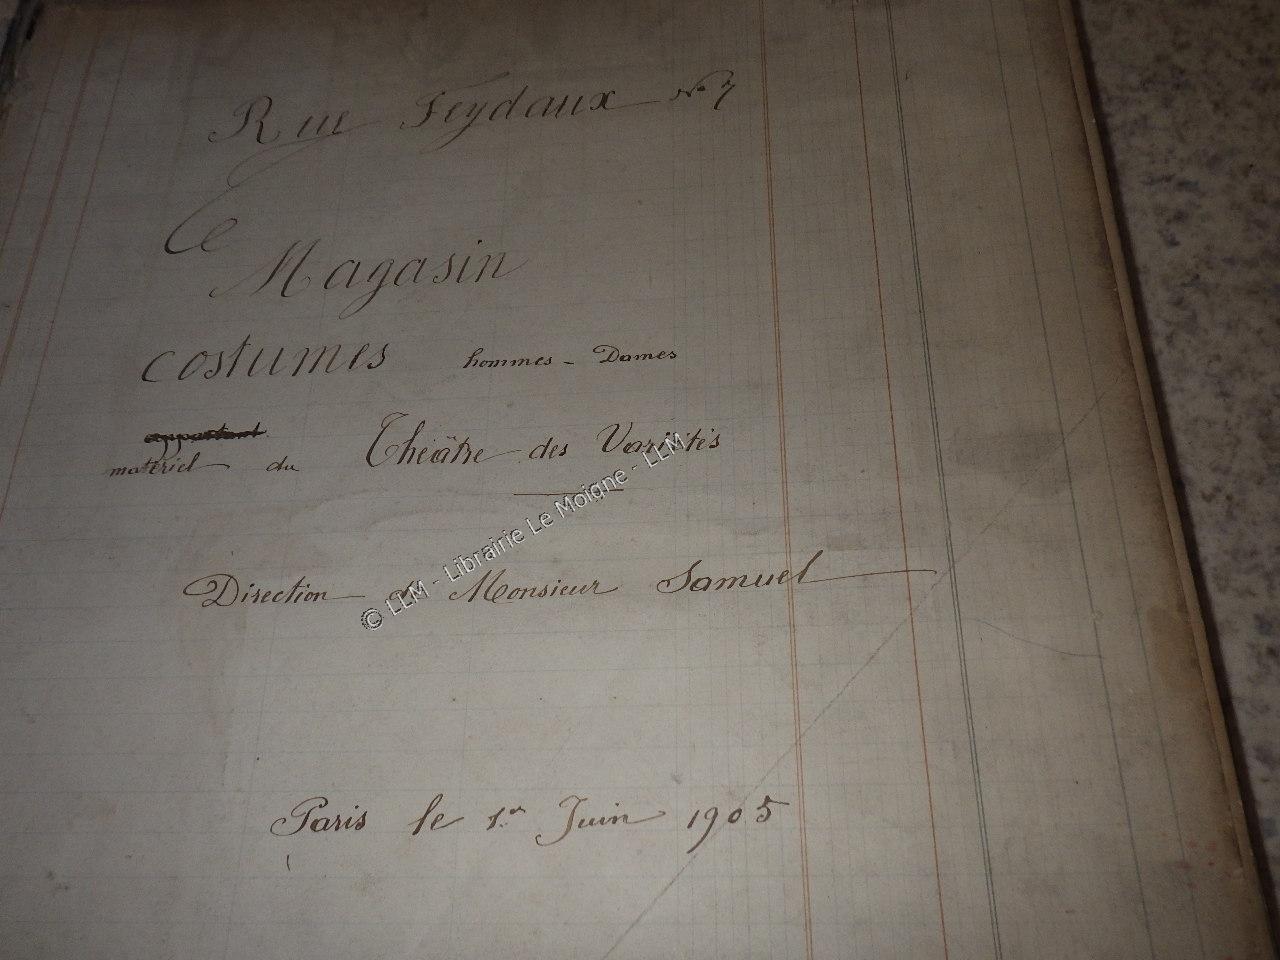 Rue Feydaux No 7
Ce
Magasin
costumes hommes - Dames
appartent
matériel du Théâtre des Variétés
Direction de Monsieur Samuel
Paris le 1er Juin 1905
© LLM - Librairie Le Moigne - LLM